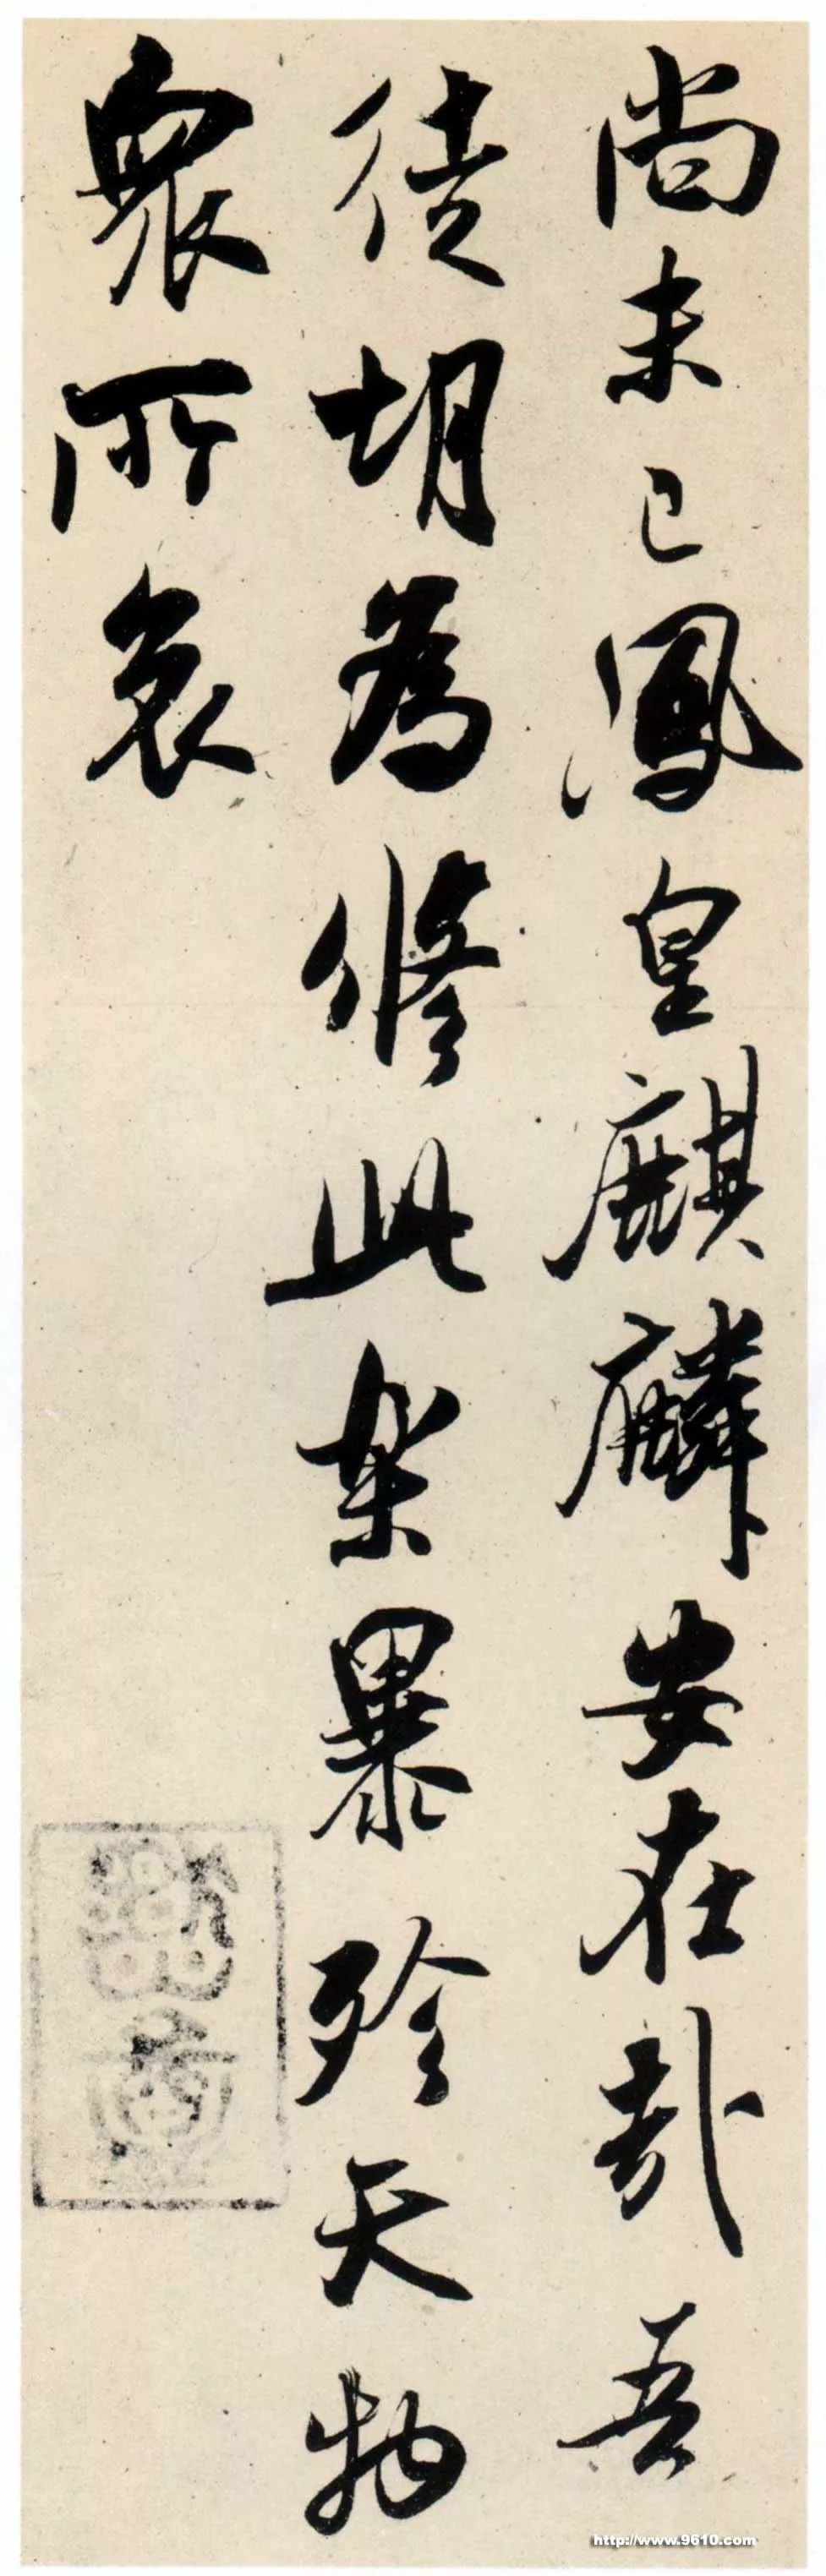 尚未已鳳皇麒麟安在哉吾
徒胡為修此樂暴殄天物
眾所哀
http://www.9610.com